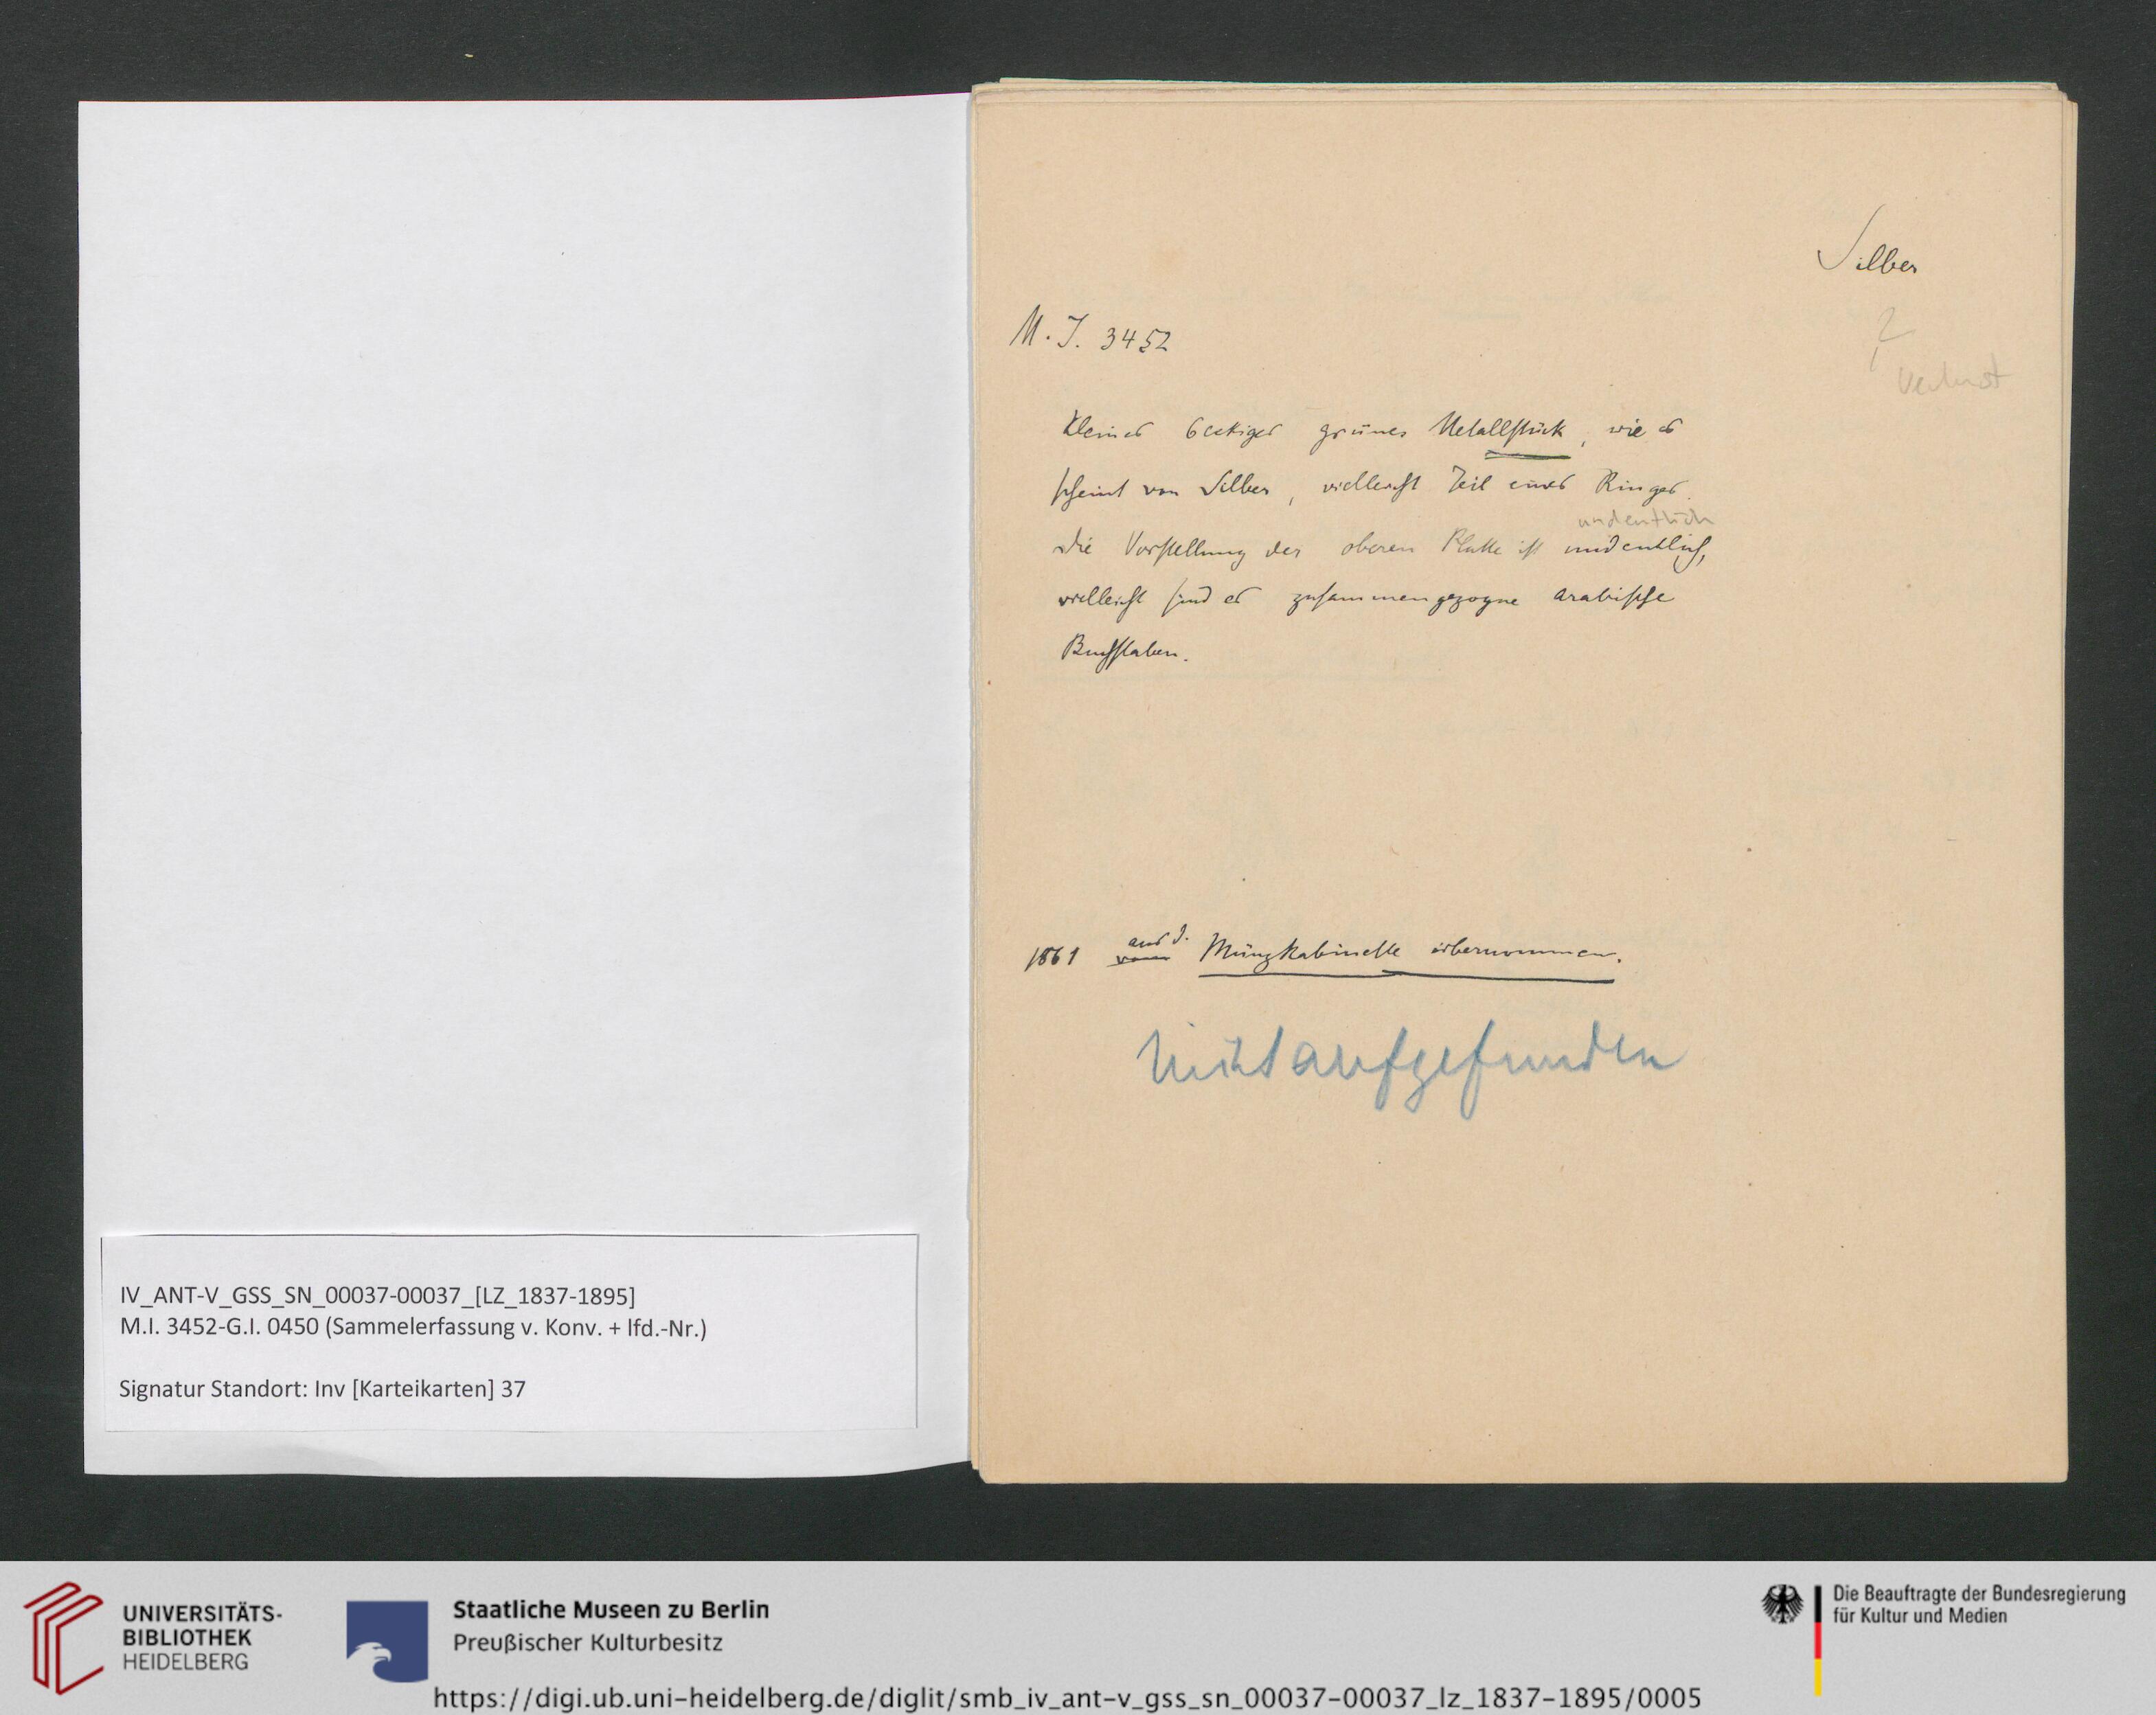 Silber
?
Verlust
M.I. 3452
Kleines 6eckiges grünes Metallstück, wie es
scheint von Silber, vielleicht Teil eines Ringes.
undeutlich
Die Vorstellung der oberen Platte ist undeutlich,
vielleicht sind es zusammengezogne arabische
Buchstaben.
aus d.
1861 vom Münzkabinette übernommen.
Nicht aufgefunden
IV_ANT-V_GSS_SN_00037-00037_[LZ_1837-1895]
M.I. 3452-G.I. 0450 (Sammelerfassung v. Konv. + lfd.-Nr.)
Signatur Standort: Inv [Karteikarten] 37
UNIVERSITÄTS-
BIBLIOTHEK
HEIDELBERG
Staatliche Museen zu Berlin
Preußischer Kulturbesitz
Die Beauftragte der Bundesregierung
für Kultur und Medien
https://digi.ub.uni-heidelberg.de/diglit/smb_iv_ant-v_gss_sn_00037-00037_lz_1837-1895/0005